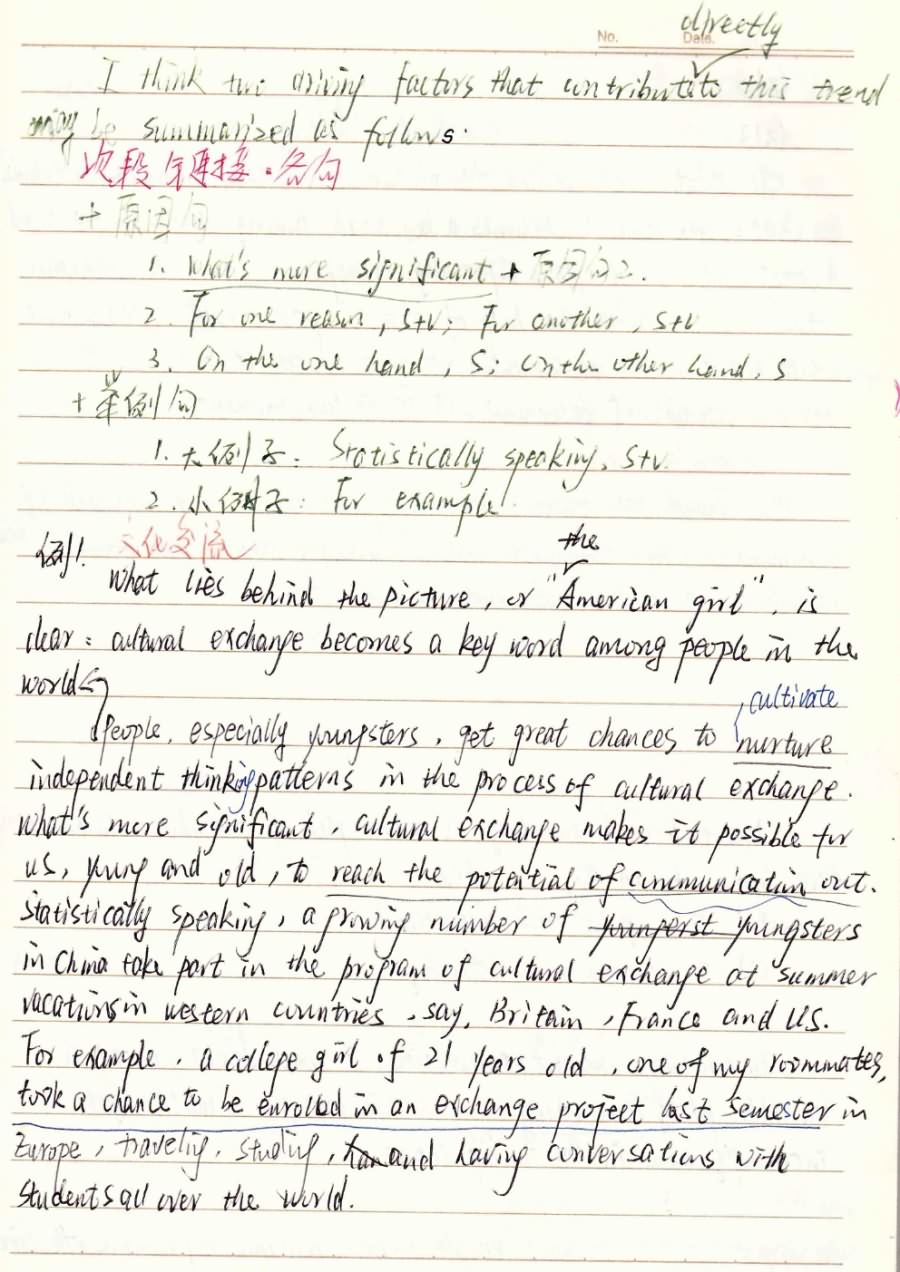 No.
Date.
directly
I think two driving factors that contribute to this trend
may be summarized as follows.
次段 链接·名句
+ 原因句
1. What's more significant + 原因句2.
2. For one reason, S+V; For another, S+V
3. On the one hand, S; On the other hand, S
+ 举例句
1. 大例子: Statistically speaking, S+V.
2. 小例子: For example.
例1. 文化交流
the
What lies behind the picture, or "American girl", is
clear: cultural exchange becomes a key word among people in the
world
cultivate
People, especially youngsters, get great chances to nurture
independent thinking patterns in the process of cultural exchange.
What's more significant, cultural exchange makes it possible for
us, young and old, to reach the potential of communication out.
Statistically speaking, a growing number of youngerst youngsters
in China take part in the program of cultural exchange at summer
vacations in western countries, say, Britain, France and US.
For example, a college girl of 21 years old, one of my roommates,
took a chance to be enrolled in an exchange project last semester in
Europe, traveling, studing, and having conversations with
students all over the world.